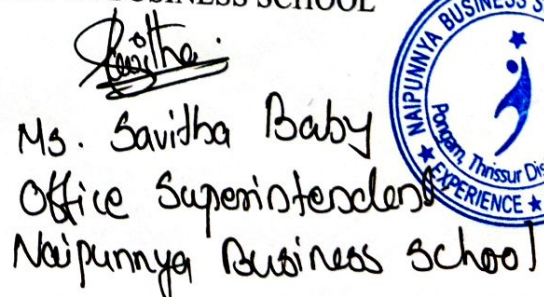 BUSINESS SCHOOL
Savitha
Ms. Savitha Baby
Office Superintendent
Naipunnya Business School
NAIPUNNYA BUSINESS S
Pongam, Thrissur Dis
★ EXPERIENCE ★